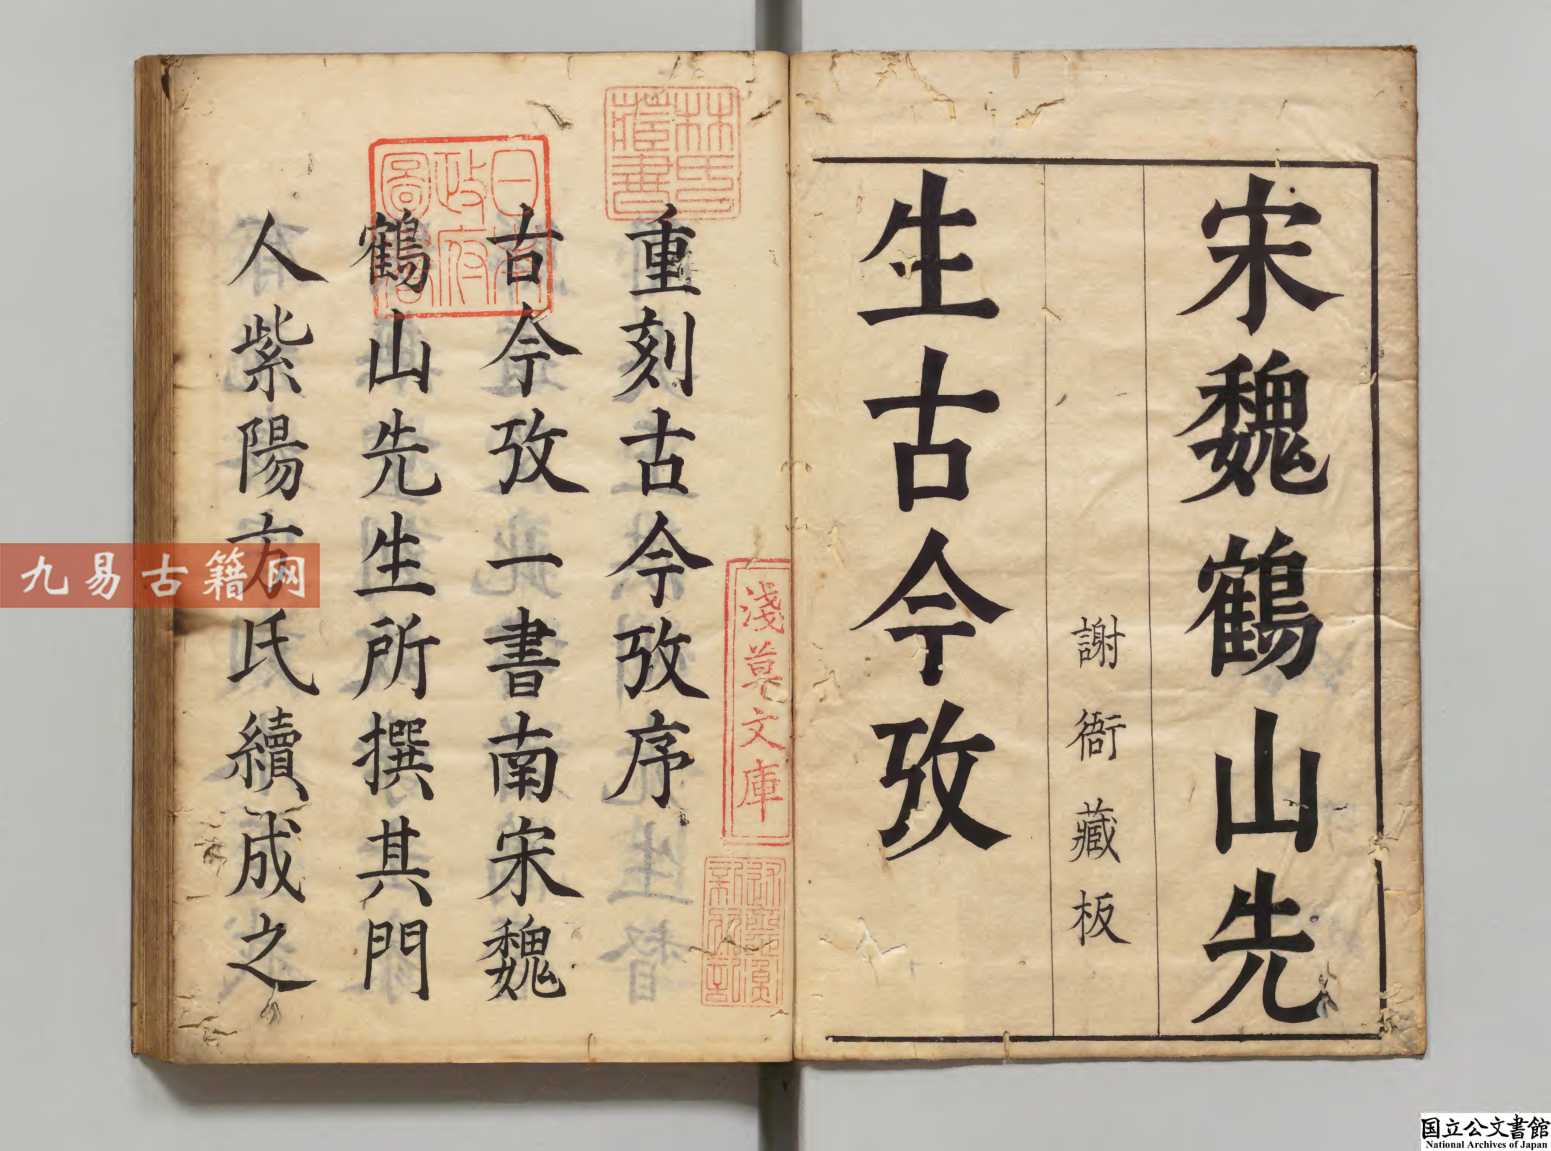 宋魏鶴山先
謝衙藏板
生古今攷
林氏藏書
淺草文庫
日本政府圖書
重刻古今攷序
古今攷一書南宋魏
鶴山先生所撰其門
人紫陽方氏續成之
九易古籍网
国立公文書館
National Archives of Japan